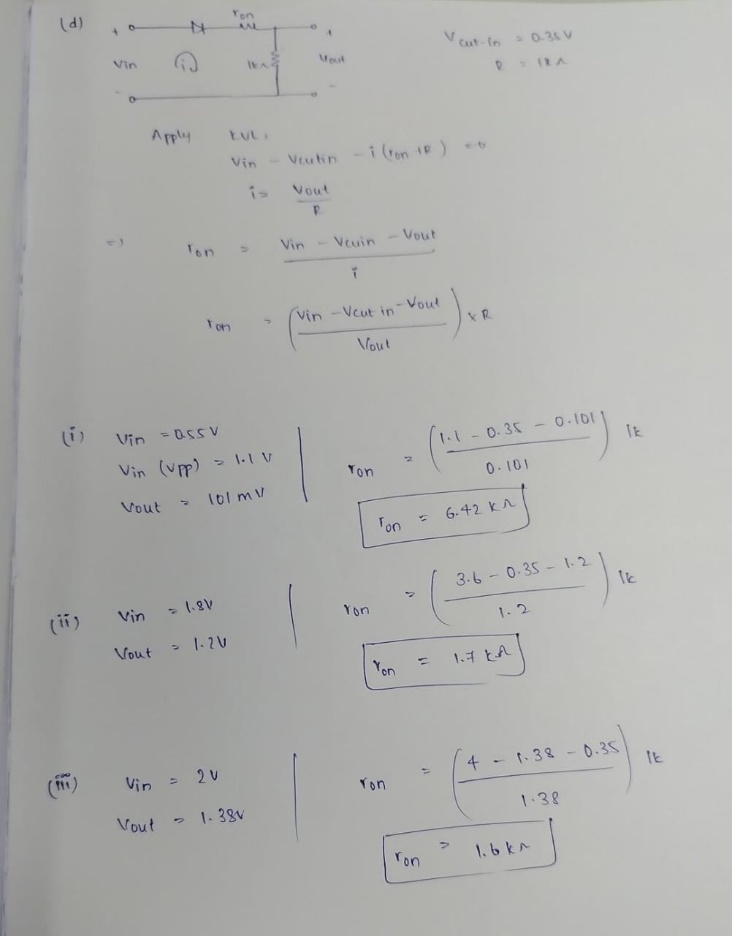 (d)
+ ron +
Vin i 1kΩ Vout
- -
Vcut-in = 0.35V
R = 1kΩ
Apply KVL,
Vin - Vcutin - i(ron+R) = 0
i = Vout
R
=) ron = Vin - Vcuin - Vout
i
ron = (Vin - Vcut in - Vout) × R
Vout
(i) Vin = 0.55V
Vin (Vpp) = 1.1 V
Vout = 101 mV
ron = (1.1 - 0.35 - 0.101) 1k
0.101
ron = 6.42 kΩ
(ii) Vin = 1.8V
Vout = 1.2V
ron = (3.6 - 0.35 - 1.2) 1k
1.2
ron = 1.7 kΩ
(iii) Vin = 2V
Vout = 1.38V
ron = (4 - 1.38 - 0.35) 1k
1.38
ron = 1.6 kΩ